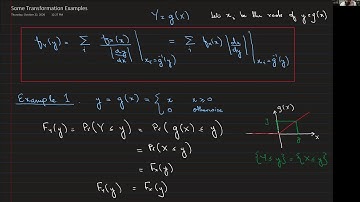 Some Transformation Examples
Thursday, October 22, 2020 12:27 PM
Y = g(x) Let x_i be the roots of y = g(x)
f_Y(y) = Σ_i f_X(x) / |dy/dx| |_{x_i = g^{-1}(y)} = Σ_i f_X(x) |dx/dy| |_{x_i = g^{-1}(y)}
Example 1 : y = g(x) = { x x ≥ 0
0 otherwise
g(x)
y
x
F_Y(y) = Pr(Y ≤ y) = Pr( g(x) ≤ y )
= Pr(X ≤ y)
{Y ≤ y} = {X ≤ y}
= F_X(y)
F_Y(y) = F_X(y)